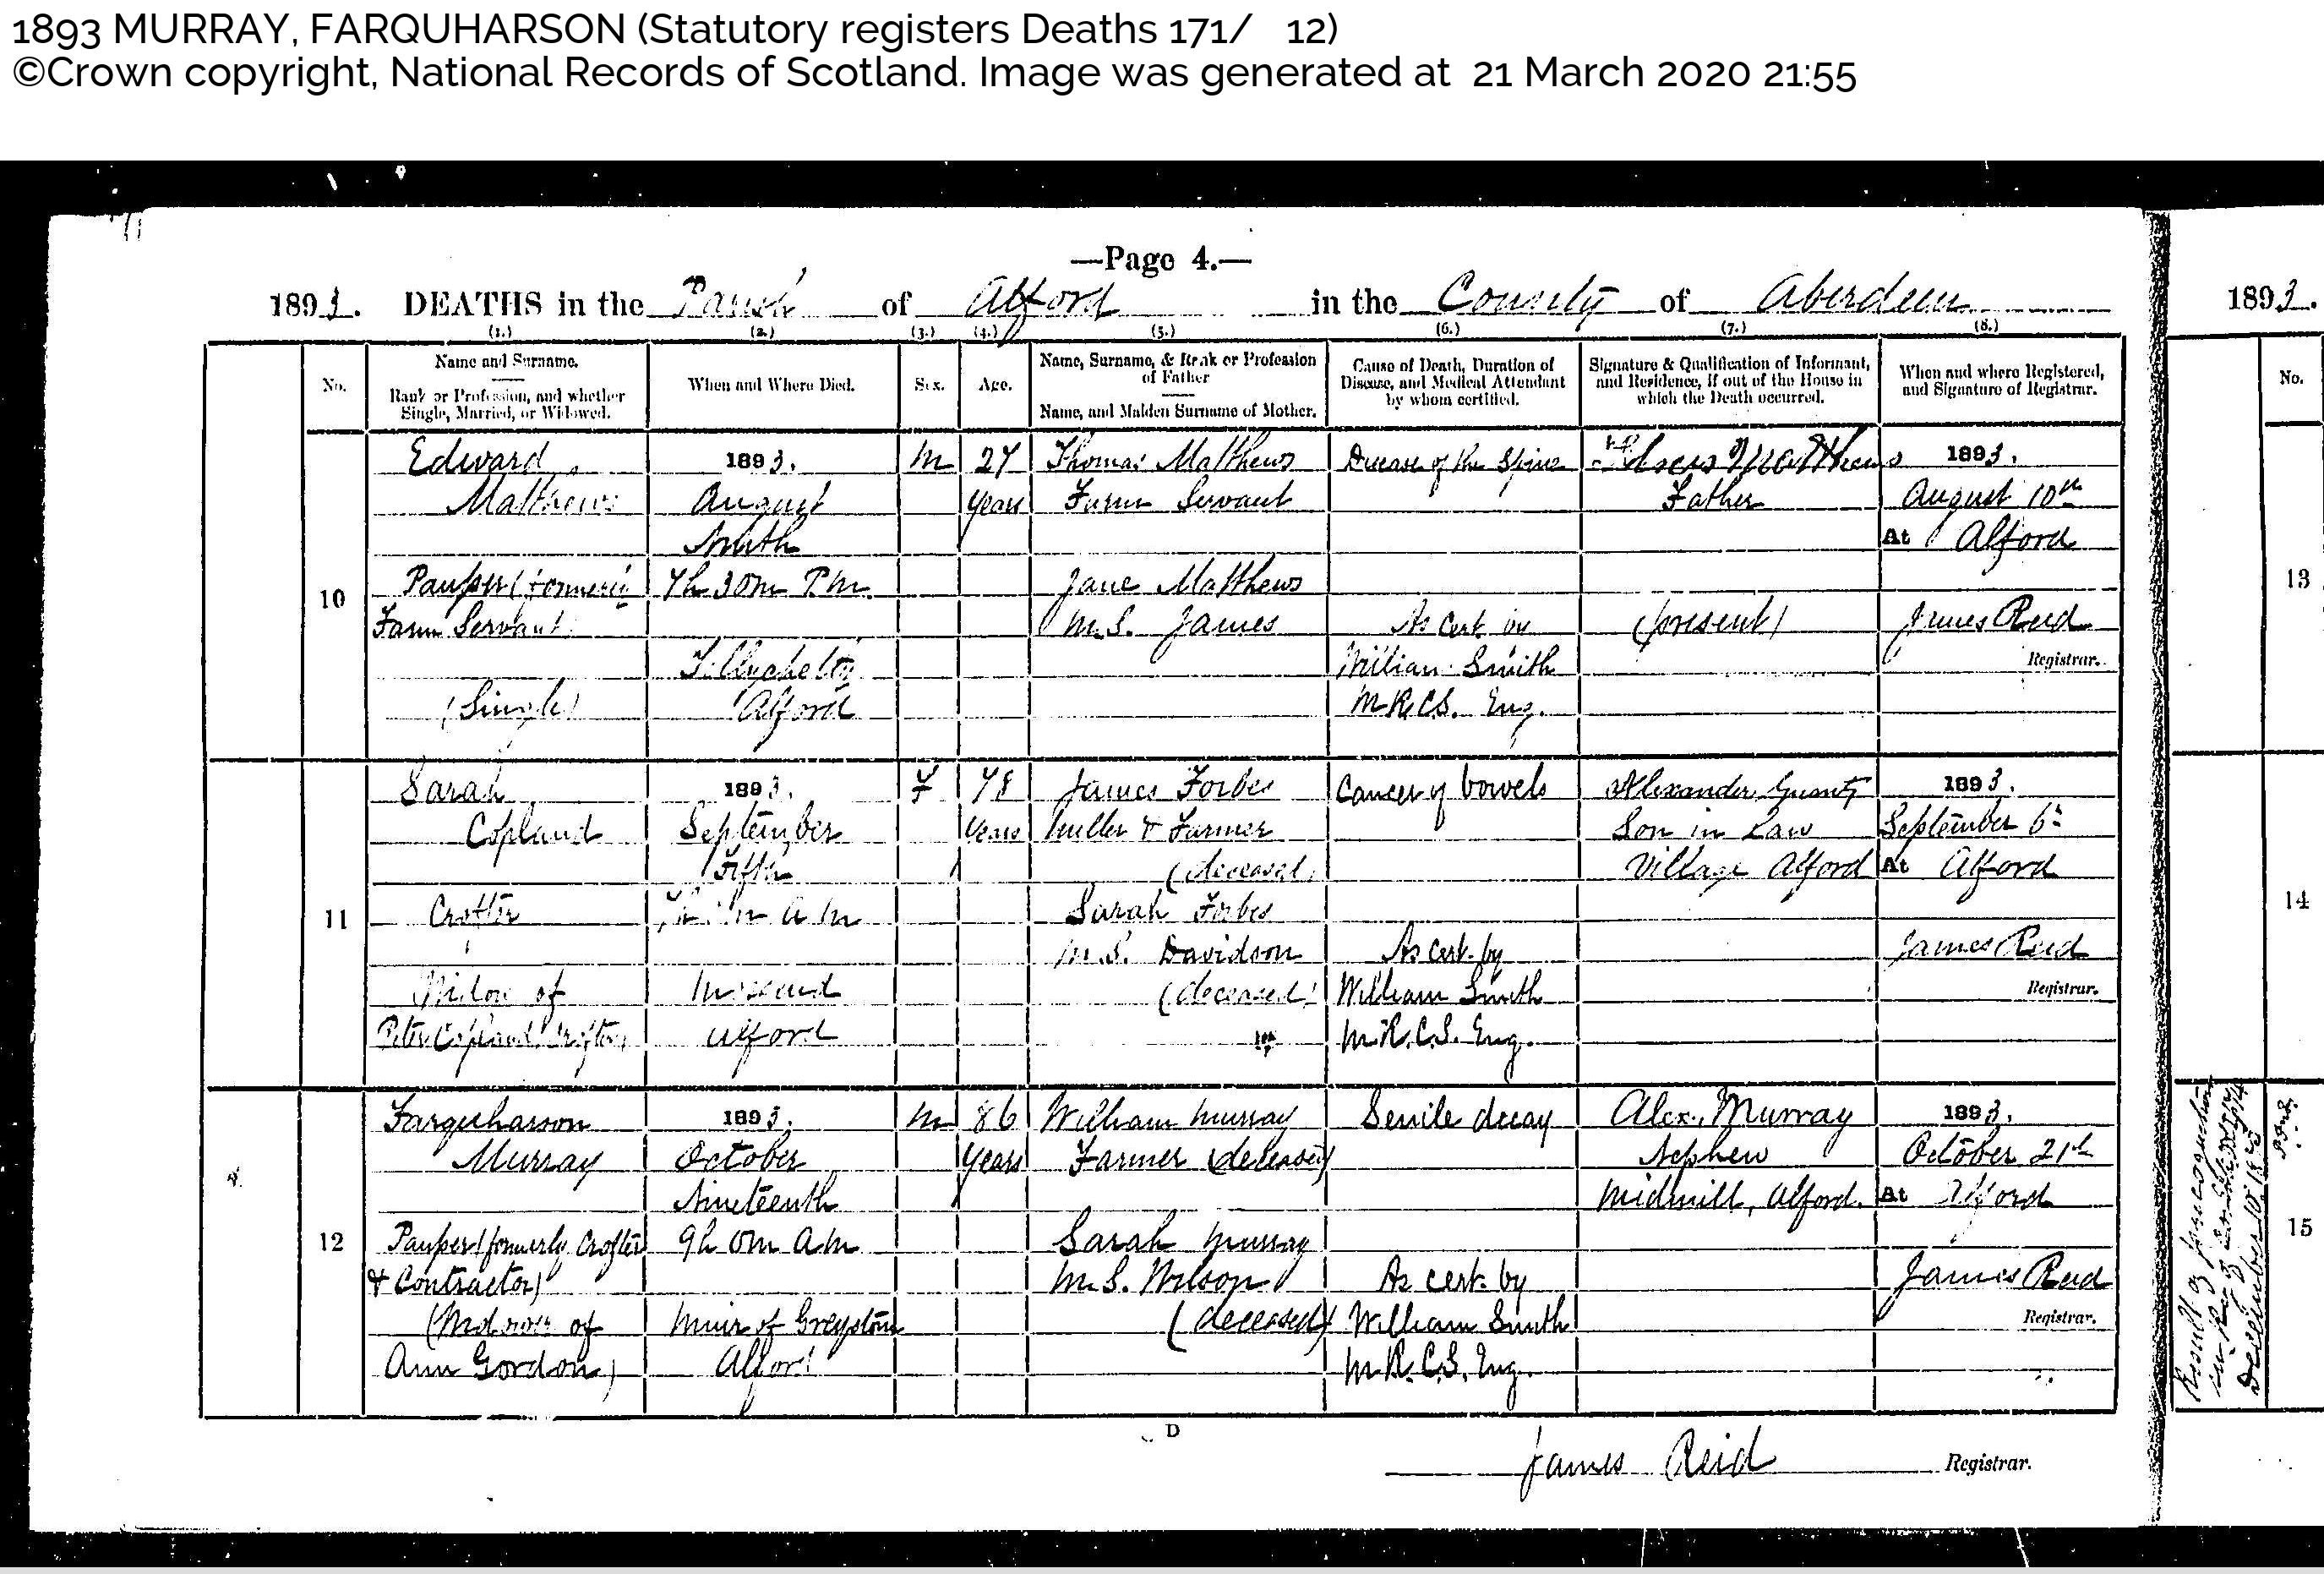 1893 MURRAY, FARQUHARSON (Statutory registers Deaths 171/ 12)
©Crown copyright, National Records of Scotland. Image was generated at 21 March 2020 21:55
—Page 4.—
1893. DEATHS in the Parish of Alford in the County of Aberdeen
1893.
(1.) (2.) (3.) (4.) (5.) (6.) (7.) (8.)
No.
Name and Surname.
Rank or Profession, and whether
Single, Married, or Widowed.
When and Where Died.
Sex.
Age.
Name, Surname, & Rank or Profession
of Father
Name, and Maiden Surname of Mother.
Cause of Death, Duration of
Disease, and Medical Attendant
by whom certified.
Signature & Qualification of Informant,
and Residence, if out of the House in
which the Death occurred.
When and where Registered,
and Signature of Registrar.
No.
10
Edward
Matthews
Pauper (formerly
Farm Servant
(Single)
1893.
August
Ninth
7h 30m P.m.
Tillychetly
Alford
M
27
years
Thomas Matthews
Farm Servant
Jane Matthews
M.S. James
Disease of the Spine
As cert by
William Smith
M.R.C.S. Eng.
Matthews
Father
(present)
1893.
August 10th
At Alford
James Reid
Registrar.
13
11
Sarah
Copland
Crofter
Widow of
Peter Copland, Crofter
1893.
September
Fifth
a m
Alford
F
78
Years
James Forbes
Miller & Farmer
(deceased)
Sarah Forbes
M.S. Davidson
(deceased)
Cancer of bowels
As Cert. by
William Smith
M.R.C.S. Eng.
Alexander Grant
Son in Law
Village Alford
1893.
September 6th
At Alford
James Reid
Registrar.
14
12
Farquharson
Murray
Pauper (formerly Crofter
& Contractor)
(Widower of
Ann Gordon)
1893.
October
Nineteenth
9h 0m a m
Muir of Greystone
Alford
M
86
Years
William Murray
Farmer (deceased)
Sarah Murray
M.S. Wilson
(deceased)
Senile decay
As cert. by
William Smith
M.R.C.S. Eng.
Alex. Murray
Nephew
Midmill, Alford.
1893.
October 21st
At Alford
James Reid
Registrar.
Result of precognition
December 10th 1893
15
D
James Reid Registrar.